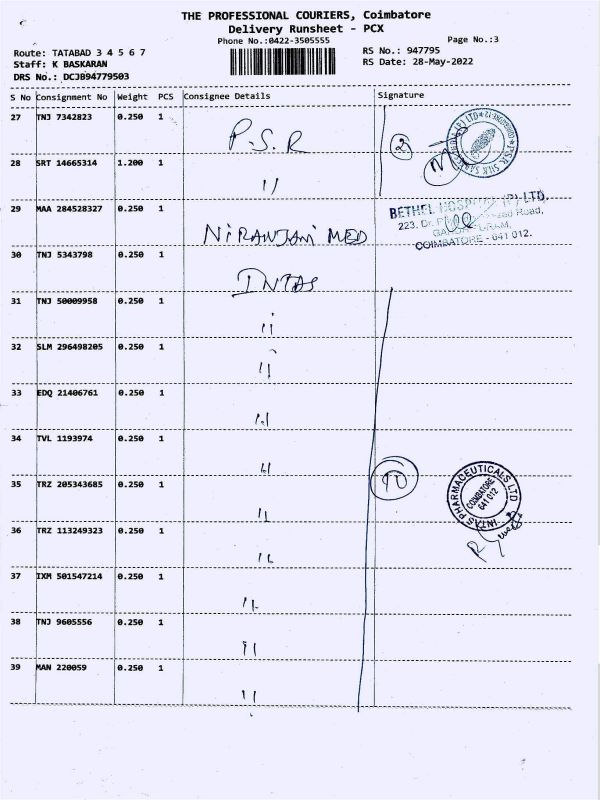 THE PROFESSIONAL COURIERS, Coimbatore
Delivery Runsheet - PCX
Phone No.:0422-3505555
Page No.:3
Route: TATABAD 3 4 5 6 7
RS No.: 947795
Staff: K BASKARAN
RS Date: 28-May-2022
DRS No.: DCJB94779503
S No Consignment No Weight PCS Consignee Details Signature
27 TNJ 7342823 0.250 1 P.S.R 2
28 SRT 14665314 1.200 1 11
29 MAA 284528327 0.250 1 NIRANJANI MED
BETHEL HOSPITAL (P) LTD.
223, Dr. Road,
COIMBATORE - 641 012.
30 TNJ 5343798 0.250 1 INTAS
31 TNJ 50009958 0.250 1 11
32 SLM 296498205 0.250 1 11
33 EDQ 21406761 0.250 1 11
34 TVL 1193974 0.250 1 11
35 TRZ 205343685 0.250 1 11 10
INTAS PHARMACEUTICALS LTD
COIMBATORE
641 012
36 TRZ 113249323 0.250 1 11
37 IXM 501547214 0.250 1 11
38 TNJ 9605556 0.250 1 11
39 MAN 220059 0.250 1 11